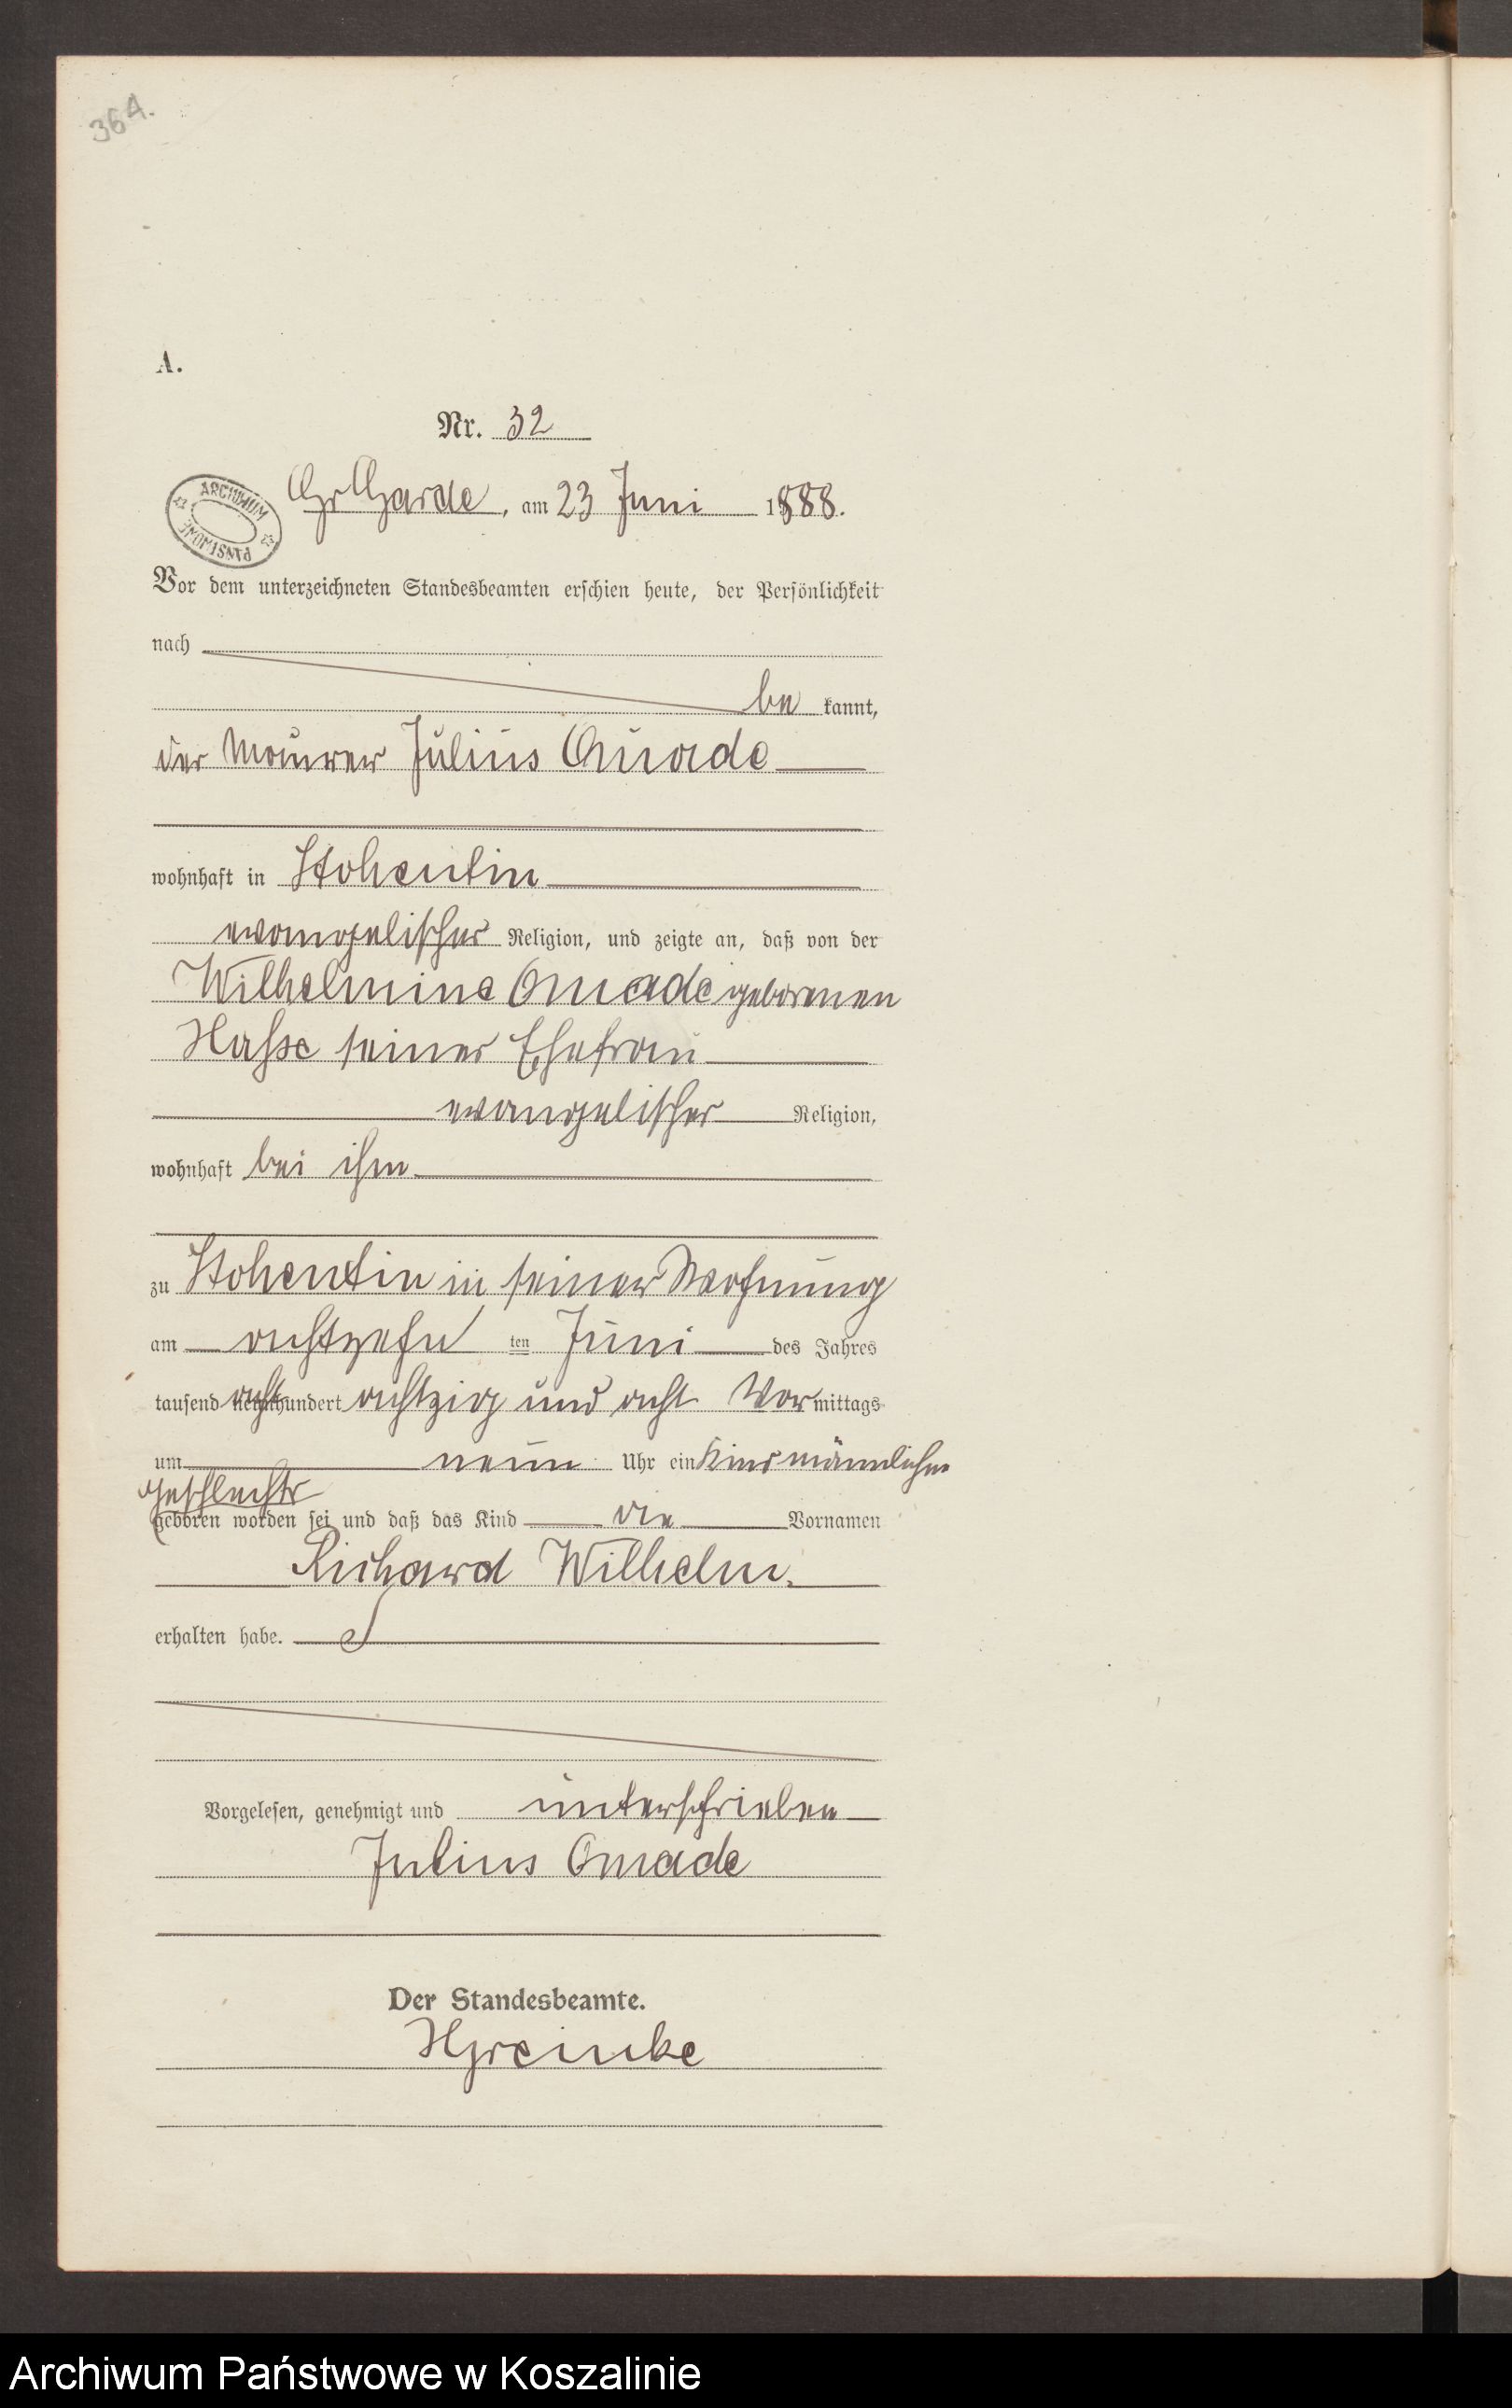 364.
A.
Nr. 32
ARCHIWUM PAŃSTWOWE
Gr Garde, am 23 Juni 1888.
Vor dem unterzeichneten Standesbeamten erschien heute, der Persönlichkeit
nach
be kannt,
der Maurer Julius Quade
wohnhaft in Stohentin
evangelischer Religion, und zeigte an, daß von der
Wilhelmine Quade geborenen
Hasse seiner Ehefrau
evangelischer Religion,
wohnhaft bei ihm
zu Stohentin in seiner Wohnung
am achtzehn ten Juni des Jahres
tausend acht hundert achtzig und acht Vor mittags
um neun Uhr ein Kind männlichen
Geschlechts
geboren worden sei und daß das Kind die Vornamen
Richard Wilhelm.
erhalten habe.
Vorgelesen, genehmigt und unterschrieben
Julius Quade
Der Standesbeamte.
Archiwum Państwowe w Koszalinie